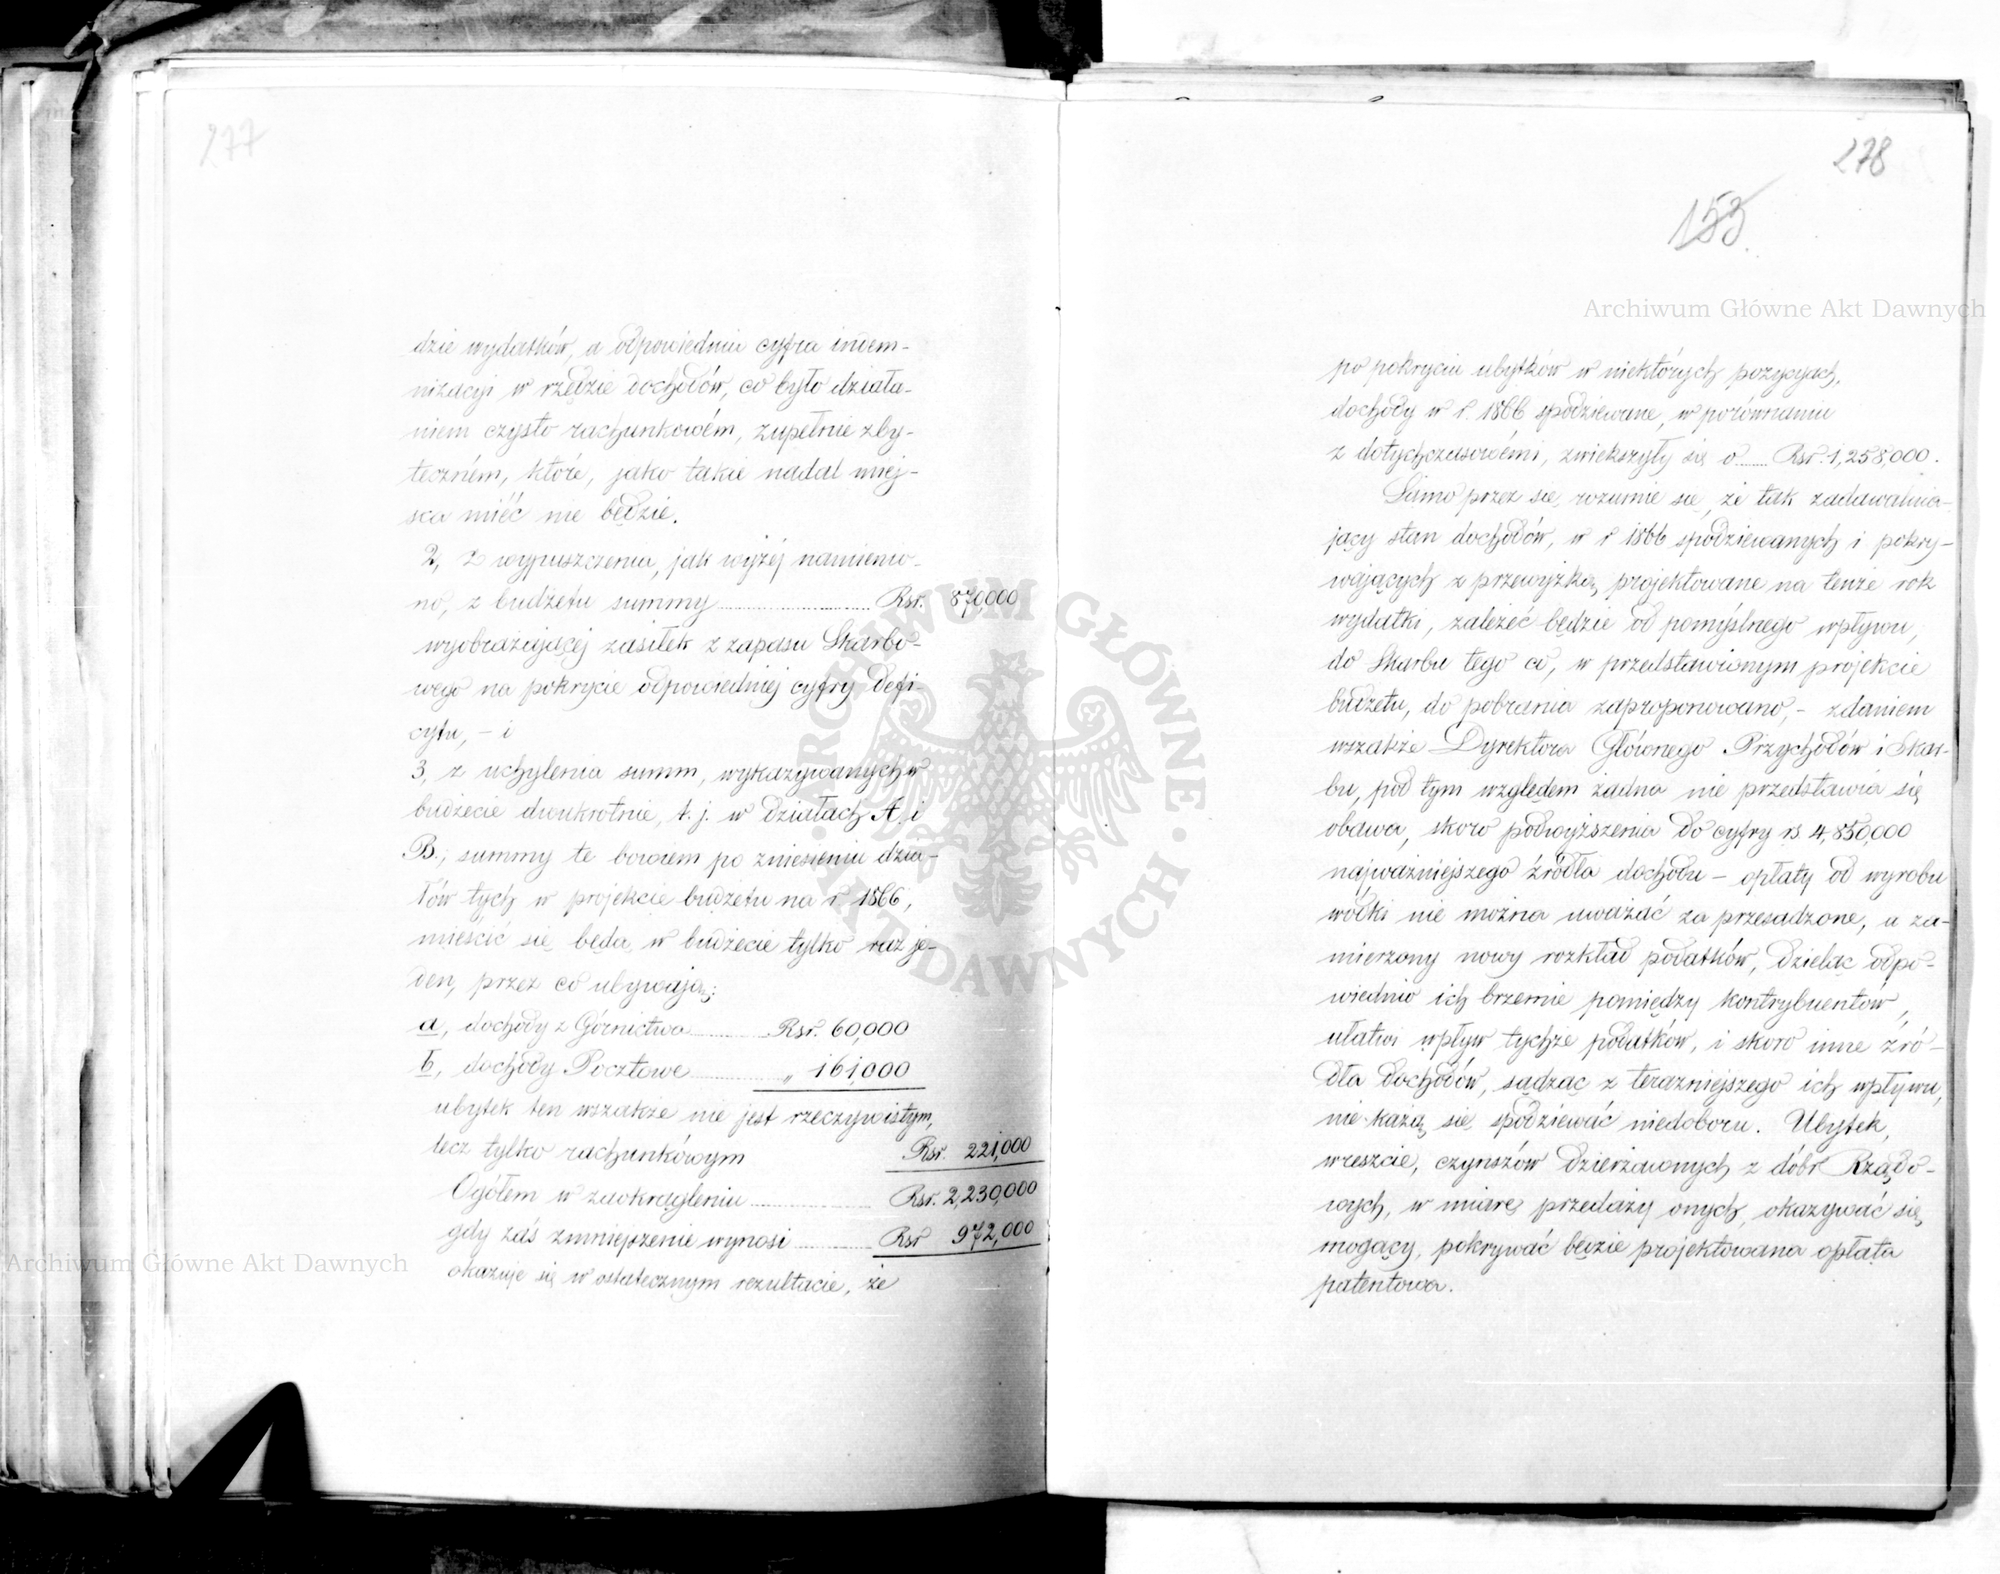 277
dzie wydatków, a odpowiednia cyfra indem-
nizacyi w rzędzie dochodów, co było działa-
niem czysto rachunkowém, zupełnie zby-
teczném, które, jako takie nadal miej-
sca mieć nie będzie.
2, z wypuszczenia, jak wyżéj namienio-
no, z budżetu summy Rsr. 870,000
wyobrażającéj zasiłek z zapasu Skarbo-
wego na pokrycie odpowiedniéj cyfry defi-
cytu, – i
3, z uchylenia summ, wykazywanych w
budżecie dwukrotnie, t. j. w działach A, i
B.; summy te bowiem po zniesieniu dzia-
łów tych w projekcie budżetu na r. 1866,
mieścić się będą w budżecie tylko raz je-
den, przez co ubywają:
a, dochody z Górnictwa Rsr. 60,000
b, dochody Pocztowe „ 161,000
ubytek ten wszakże nie jest rzeczywistym,
lecz tylko rachunkówym Rsr. 221,000
Ogółem w zaokrągleniu Rsr. 2,230,000
gdy zaś zmniejszenie wynosi Rsr 972,000
okazuje się w ostatecznym rezultacie, że
278
153.
Archiwum Główne Akt Dawnych
po pokryciu ubytków w niektórych pozycyach,
dochody w r. 1866 spodziewane, w porównaniu
z dotychczasowémi, zwiekszyły się o Rsr. 1,258,000.
Samo przez się rozumie się, że tak zadawalnia-
jący stan dochodów, w r 1866 spodziewanych i pokry-
wających z przewyżką projektowane na tenże rok
wydatki, zależeć będzie od pomyślnego wpływu,
do Skarbu tego co, w przedstawionym projekcie
budżetu, do pobrania zaproponowano, – zdaniem
wszakże Dyrektora Głównego Przychodów i Skar-
bu, pod tym względem żadna nie przedstawia się
obawa, skoro podwyższenia do cyfry rs 4,850,000
najważniejszego źródła dochodu – opłaty od wyrobu
wódki nie można uważać za przesadzone, a za-
mierzony nowy rozkład podatków, dzieląc odpo-
wiednio ich brzemie pomiędzy kontrybuentów,
ułatwi wpływ tychże podatków, i skoro inne źró-
dła dochodów, sądząc z teraźniejszego ich wpływu,
nie każą się spodziewać niedoboru. Ubytek,
wreszcie, czynszów dzierżawnych z dóbr Rządo-
wych, w miarę przedaży onych, okazywać się
mogący, pokrywać będzie projektowana opłata
patentowa.
ARCHIWUM GŁÓWNE
AKT DAWNYCH
Archiwum Główne Akt Dawnych